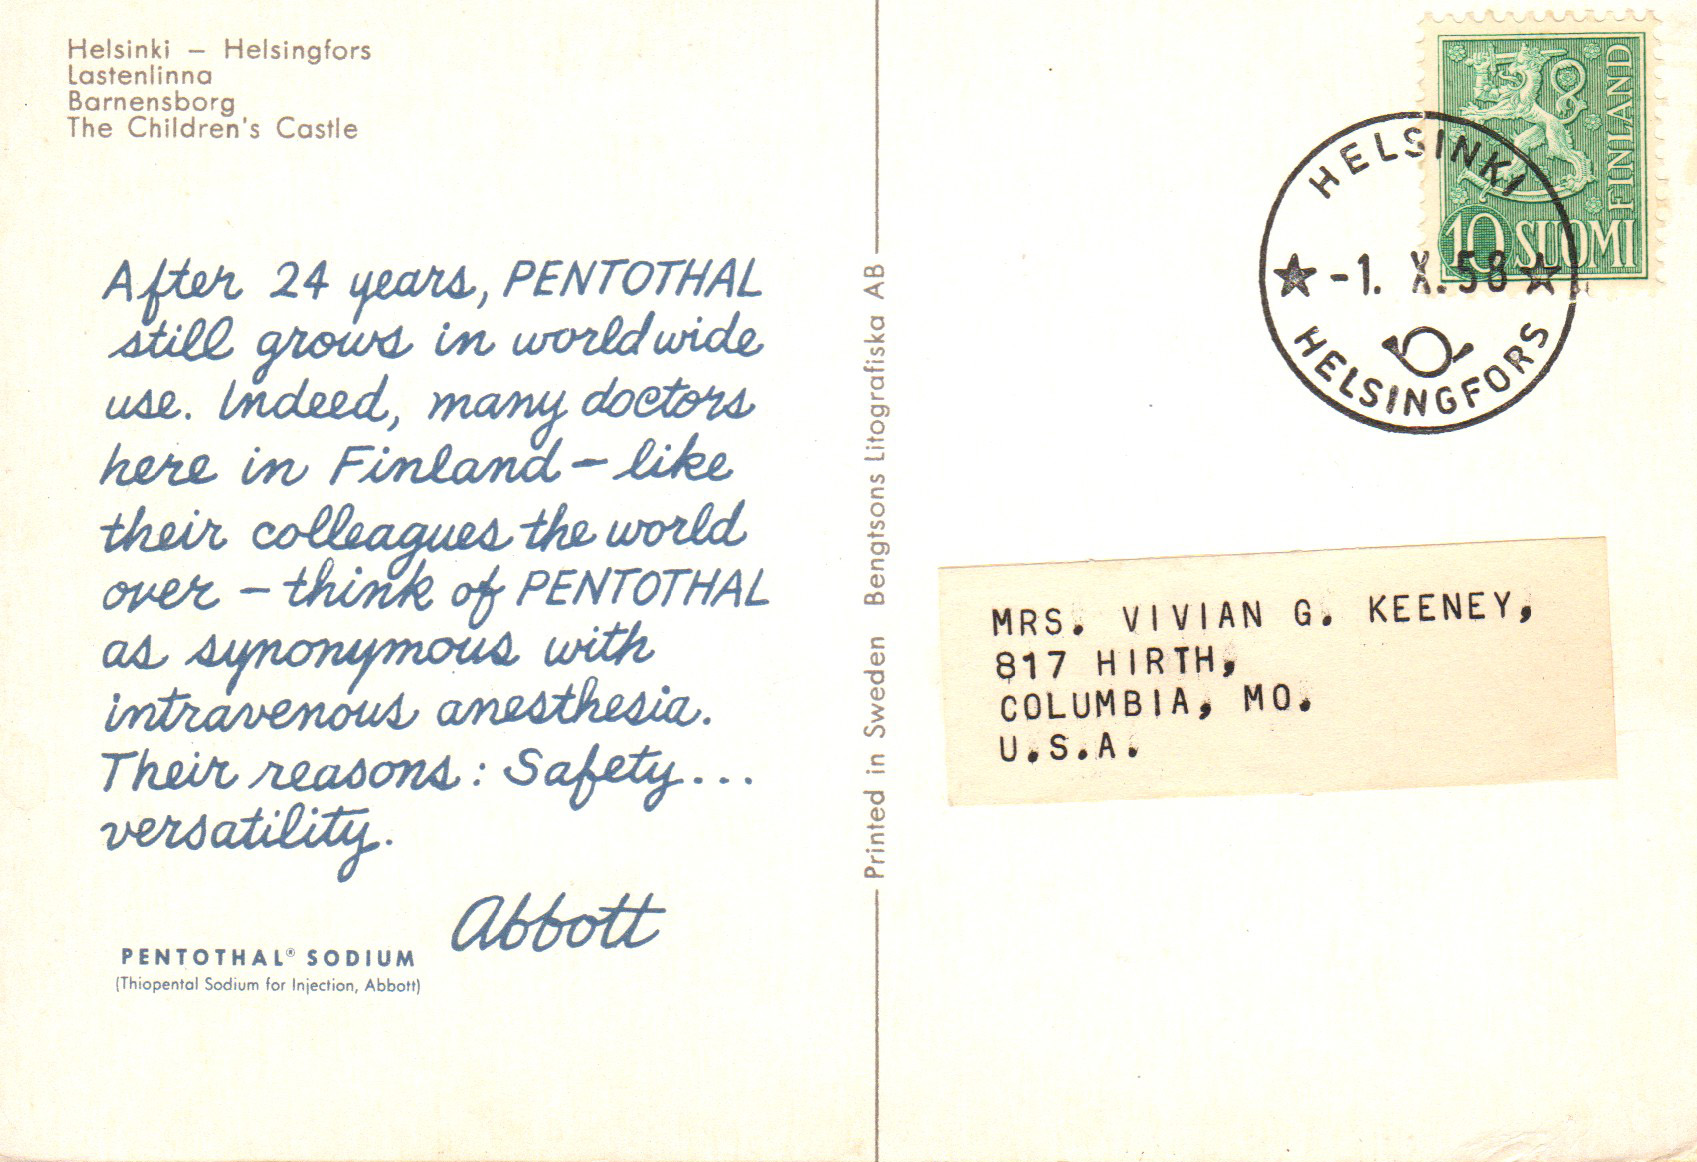 Helsinki – Helsingfors
Lastenlinna
Barnensborg
The Children's Castle
After 24 years, PENTOTHAL
still grows in worldwide
use. Indeed, many doctors
here in Finland – like
their colleagues the world
over – think of PENTOTHAL
as synonymous with
intravenous anesthesia.
Their reasons: Safety...
versatility.
Abbott
PENTOTHAL® SODIUM
(Thiopental Sodium for Injection, Abbott)
Printed in Sweden Bengtsons Litografiska AB
FINLAND
10 SUOMI
HELSINKI
-1. X. 58
HELSINGFORS
MRS. VIVIAN G. KEENEY,
817 HIRTH,
COLUMBIA, MO.
U.S.A.